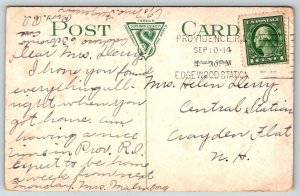 POST CARD
PROVIDENCE, R.I.
SEP 10-14
4-30PM
EDGEWOOD STATION
1 CENT 1
Dear Mrs. Derry,
I hope you found
everything all-
right when you
got home. am
having a nice
time in Prov. R.I.
Expect to be home
a week from next
Monday. Mrs.
Mrs. Helen Derry,
Central Station
Croydon Flat
N.H.